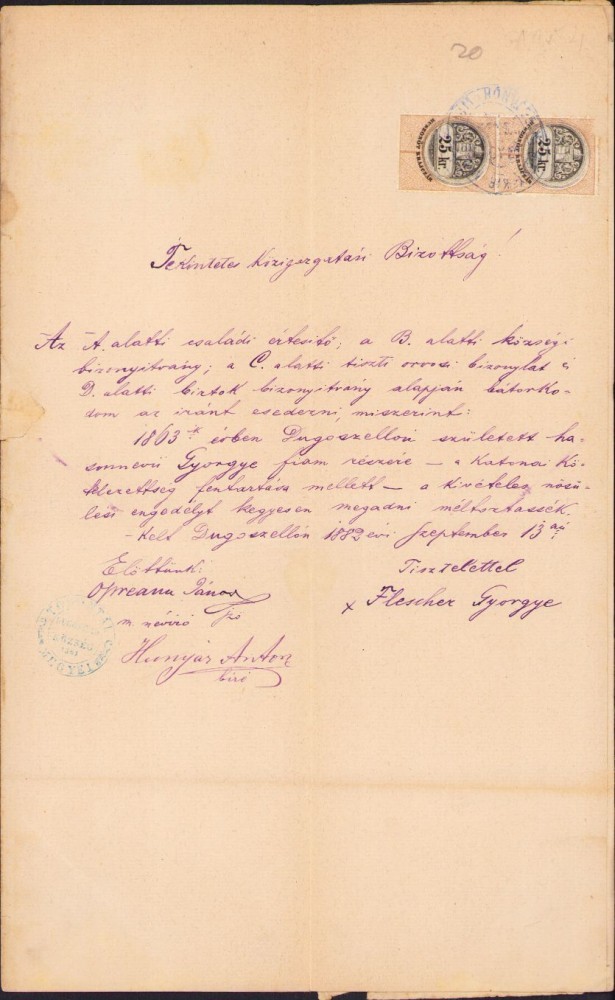 20
25 kr
25 kr
Tekintetes Közigazgatási Bizottság!
Az A. alatti családi értesitő; a B. alatti községi
bizonyitvány; a C. alatti tiszti orvosi bizonylat és
D. alatti birtok bizonyitvány alapján bátorko-
dom az iránt esedezni, miszerint:
1863 évben Dugoszellón született ha-
sonnevü Gyorgye fiam részére — a Katonai Kö-
telezettség fentartása mellett — a kivételes nösü-
lési engedélyt kegyesen megadni méltoztassék.
— Kelt Dugoszellón 1882 évi Szeptember 13
Előttünk:
Tisztelettel
Opreanu János
x Flescher Gyorgye
m. néviró
Hunyár Antor
biró